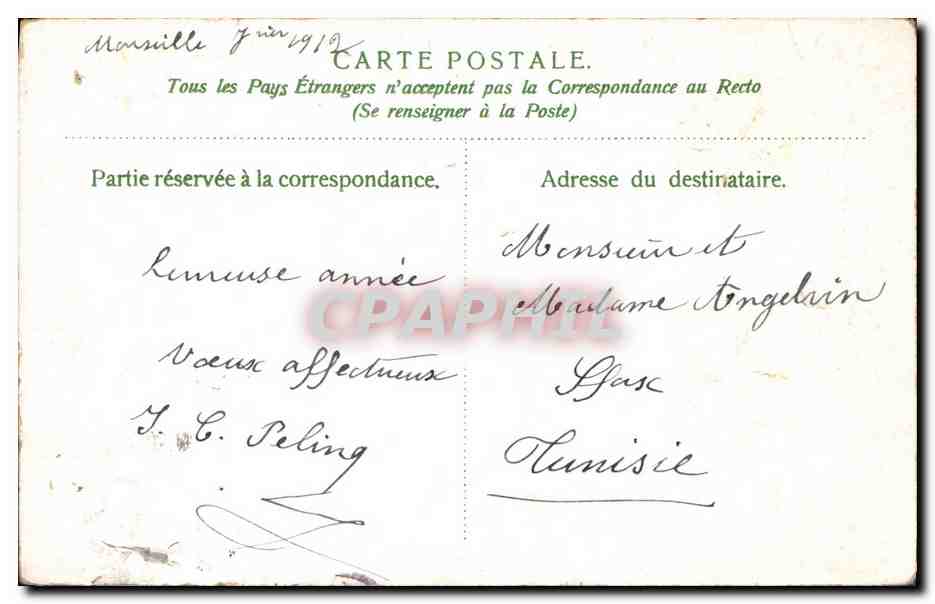 Marseille Jvier 1912
CARTE POSTALE.
Tous les Pays Étrangers n'acceptent pas la Correspondance au Recto
(Se renseigner à la Poste)
Partie réservée à la correspondance.
heureuse année
Vœux affectueux
J. C. Peling
Adresse du destinataire.
Monsieur et
Madame Angelvin
Sfax
Tunisie
CPAPHIL